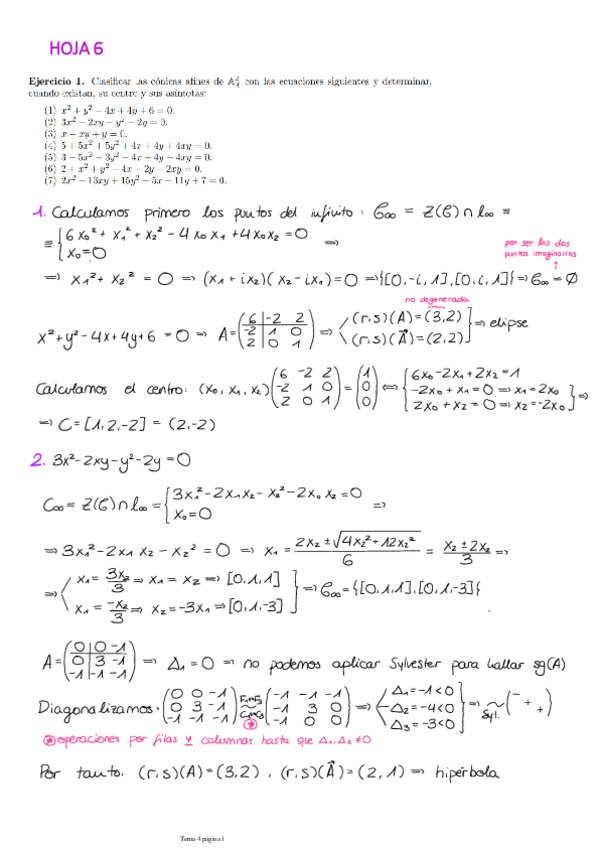 HOJA 6
Ejercicio 1. Clasificar las cónicas afines de A²_R con las ecuaciones siguientes y determinar,
cuando existan, su centro y sus asíntotas:
(1) x² + y² − 4x + 4y + 6 = 0.
(2) 3x² − 2xy − y² − 2y = 0.
(3) x − xy + y = 0.
(4) 5 + 5x² + 5y² + 4x + 4y + 4xy = 0.
(5) 3 − 5x² − 3y² − 4x + 4y − 4xy = 0.
(6) 2 + x² + y² − 4x − 2y − 2xy = 0.
(7) 2x² − 13xy + 15y² − 5x − 11y + 7 = 0.
1. Calculamos primero los puntos del infinito: C∞ = Z(C) ∩ l∞ ≡
≡ { 6x₀² + x₁² + x₂² − 4x₀x₁ + 4x₀x₂ = 0 ⇒
x₀ = 0
por ser los dos
puntos imaginarios
⇒ x₁² + x₂² = 0 ⇒ (x₁ + ix₂)(x₂ − ix₁) = 0 ⇒ {[0,−i,1],[0,i,1]} ⇒ C∞ = ∅
no degenerada
x² + y² − 4x + 4y + 6 = 0 ⇒ A = (6 −2 2 / −2 1 0 / 2 0 1) ⇒ (r,s)(A) = (3,2) (r,s)(A⃗) = (2,2) ⇒ elipse
Calculamos el centro: (x₀, x₁, x₂)(6 −2 2 / −2 1 0 / 2 0 1) = (1 / 0 / 0) ⇔ { 6x₀ − 2x₁ + 2x₂ = 1
−2x₀ + x₁ = 0 ⇒ x₁ = 2x₀
2x₀ + x₂ = 0 ⇒ x₂ = −2x₀ ⇒
⇒ C = [1,2,−2] = (2,−2)
2. 3x² − 2xy − y² − 2y = 0
C∞ = Z(C) ∩ l∞ = { 3x₁² − 2x₁x₂ − x₂² − 2x₀x₂ = 0 ⇒
x₀ = 0
⇒ 3x₁² − 2x₁x₂ − x₂² = 0 ⇒ x₁ = (2x₂ ± √(4x₂² + 12x₂²))/6 = (x₂ ± 2x₂)/3 ⇒
⇒ x₁ = 3x₂/3 ⇒ x₁ = x₂ ⇒ [0,1,1]
x₁ = −x₂/3 ⇒ x₂ = −3x₁ ⇒ [0,1,−3] ⇒ C∞ = {[0,1,1],[0,1,−3]}
A = (0 0 −1 / 0 3 −1 / −1 −1 −1) ⇒ Δ₁ = 0 ⇒ no podemos aplicar Sylvester para hallar sg(A)
Diagonalizamos: (0 0 −1 / 0 3 −1 / −1 −1 −1) ~ (−1 −1 −1 / −1 3 0 / −1 0 0) ⇒ Δ₁ = −1 < 0
Δ₂ = −4 < 0
Δ₃ = −3 < 0 ⇒ ~ Syl. (− + +)
⊛ operaciones por filas y columnas hasta que Δ₁, Δ₂ ≠ 0
Por tanto. (r,s)(A) = (3,2), (r,s)(A⃗) = (2,1) ⇒ hipérbola
Tema 4 página 1